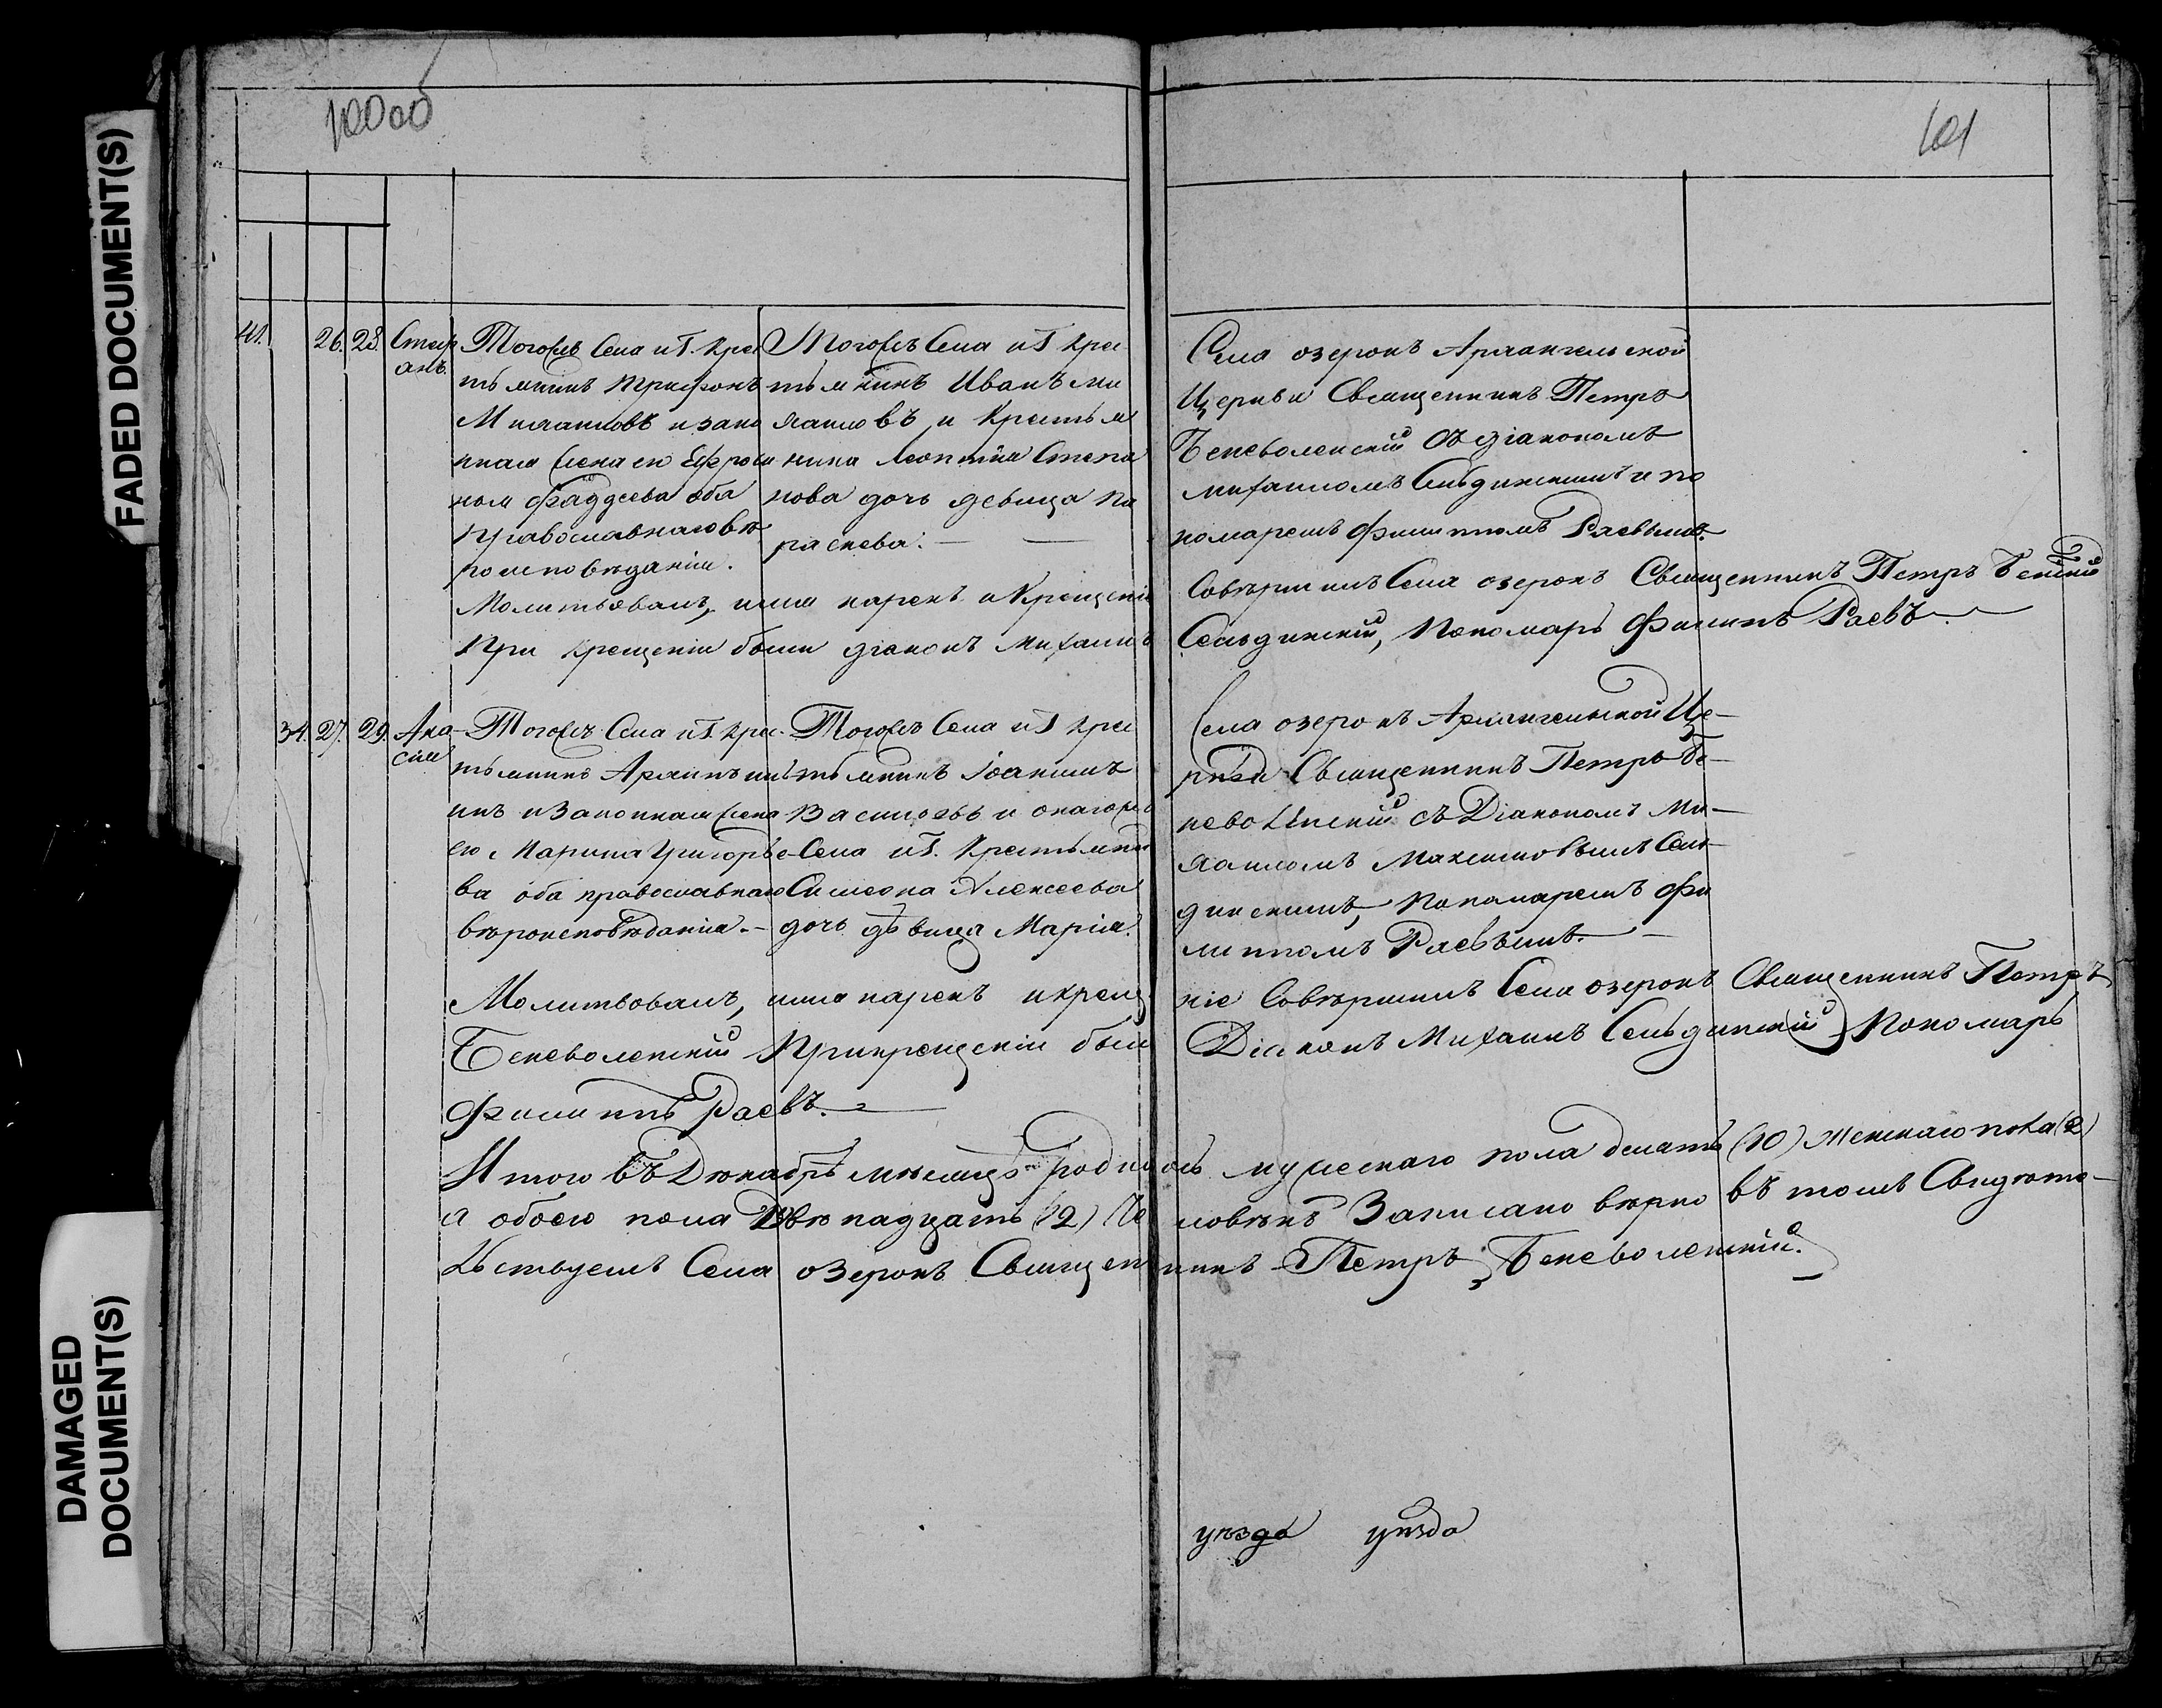 FADED DOCUMENT(S)
DAMAGED DOCUMENT(S)
101
41. 26. 28. Стеф
анъ.
Тогожъ Села и Г. Кре
тьянинъ Трифонъ
Михаиловъ и зако
нная жена его Ефроси
ния Фаддеева оба
Православнаго вѣ
роисповѣданія.
Тогожъ Села и Г. Крес
тьянинъ Иванъ Ми
хаиловъ и Крестья
нина Леонтія Степа
нова дочь девица Па
раскева.
Села озерокъ Архангельской
Церкви Священникъ Петръ
Беневоленскій съ діакономъ
михаиломъ Сельдинскимъ и по
номаремъ Филиппомъ Раевымъ.
Молитвовалъ, имя нарекъ и Крещеніе
Совершилъ Села озерокъ Священникъ Петръ
При крещеніи были діаконъ Михаилъ
Сельдинскій, Пономарь Филипъ Раевъ.
34. 27. 29. Ана-
сія
Тогожъ Села и Г. Крес-
тьянинъ
инъ и Законная жена
его Марина Григорье-
ва оба православнаго
вѣроисповѣданія.
Тогожъ Села и Г. Крес
тьянинъ Іоакимъ
Васильевъ и онагожъ
Села и Г. Крестьянина
Симеона Алексеева
дочь дѣвица Марія.
Села озерокъ Архангельской Це-
ркви Священникъ Петръ Бе-
неволенскій съ Діакономъ Ми-
хаиломъ Максимовымъ Сель-
динскимъ, Пономаремъ Фи
липпомъ Раевымъ.
Молитвовалъ, имя нарекъ и крещ
ніе Совершилъ Села озерокъ Священникъ Петръ
Беневоленскій При крещеніи были
Діаконъ Михаилъ Сельдинскій Пономарь
Филиппъ Раевъ.
Итого въ Декабрѣ мѣсяцѣ родилось мужескаго пола десать (10) Женскаго пола (2)
а обоего пола Двѣнадцать (12) Человѣкъ Записано вѣрно въ томъ Свидѣте-
льствуемъ Села озерокъ Священникъ Петръ Беневоленскій.
уѣзда уѣзда